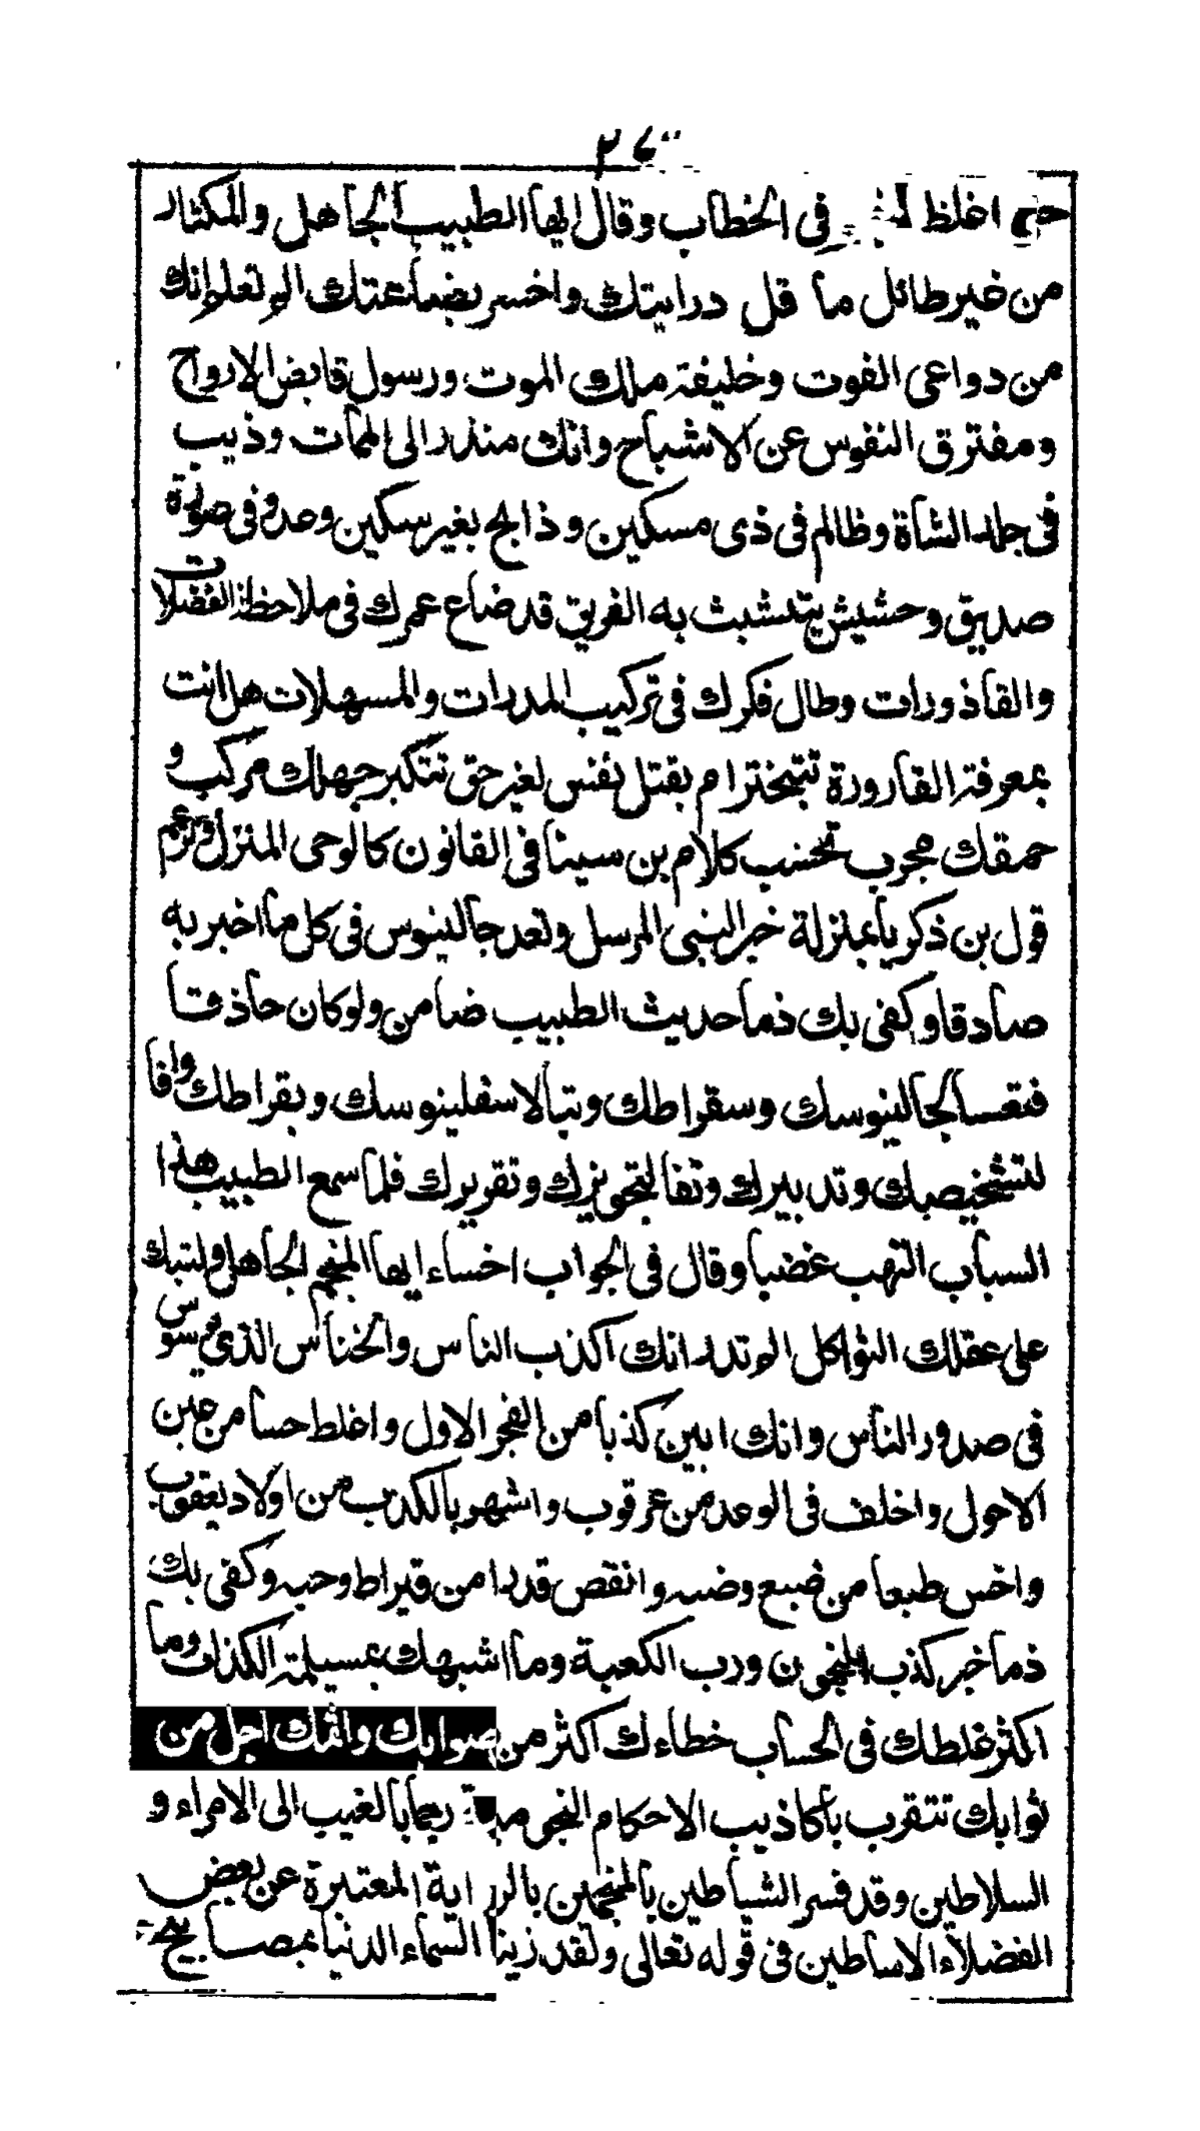 ٢٧٣
اغلظ في الخطاب وقال ايها الطبيب الجاهل والمكثار
من غير طائل ما قل درايتك واخسر بضاعتك الم تعلم انك
من دواعى الفوت وخليفة ملك الموت ورسول قابض الارواح
ومفترق النفوس عن الاشباح وانك منذر الى الممات وذيب
فى جلد الشاة وظالم فى ذى مسكين وذابح بغير سكين وعدو فى صورة
صديق وحشيش يتشبث به الغريق قد ضاع عمرك فى ملاحظة الفضلات
والقاذورات وطال فكرك فى تركيب المدرات والمسهلات هل انت
بمعرفة القارورة تتبختر ام بقتل نفس لغير حق تتكبر جهلك مركب و
حمقك مجرب تحسب كلام بن سينا فى القانون كالوحى المنزل وتزعم
قول بن ذكريا بمنزلة خبر النبى المرسل وتعد جالينوس فى كل ما اخبر به
صادقا وكفى بك ذما حديث الطبيب ضامن ولو كان حاذقا
فتعسا لجالينوسك وسقراطك وتبا لاسقلينوسك وبقراطك وافا
لتشخيصك وتدبيرك وتفا لتجويزك وتقريرك فلما سمع الطبيب هذا
السباب التهب غضبا وقال فى الجواب اخساء ايها المنجم الجاهل ولتبك
على عقلك الثواكل الم تدر انك اكذب الناس والخناس الذى يوسوس
فى صدور الناس وانك ابين كذبا من الفجر الاول واغلط حسا من عين
الاحول واخلف فى الوعد من عرقوب واشهر بالكذب من اولاد يعقوب
واخس طبعا من ضبع وضب وانقص قدرا من قيراط وحبه وكفى بك
ذما خبر كذب المنجمون ورب الكعبة وما اشبهك بمسيلمة الكذاب وما
اكثر غلطك فى الحساب خطاءك اكثر من صوابك واثمك اجل من
ثوابك تتقرب باكاذيب الاحكام النجومية رجما بالغيب الى الامراء و
السلاطين وقد فسر الشياطين بالمنجمين بالرواية المعتبرة عن بعض
الفضلاء الاساطين فى قوله تعالى ولقد زينا السماء الدنيا بمصابيح